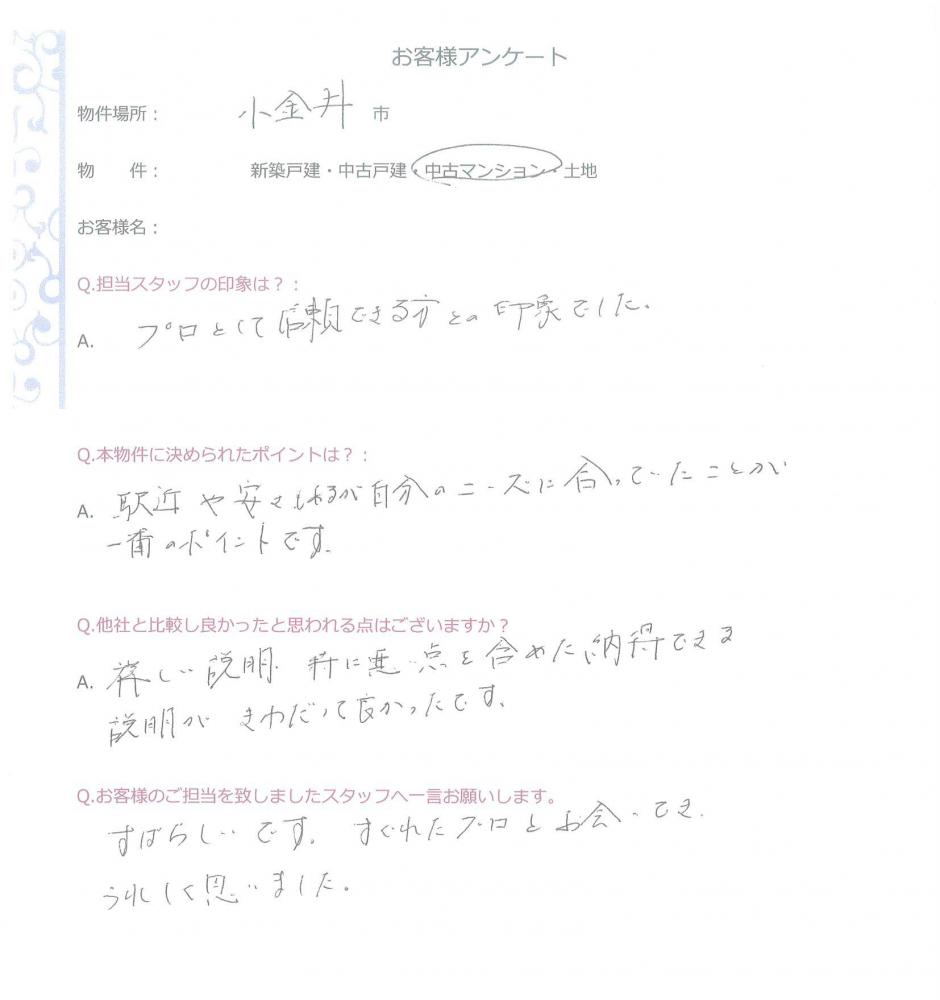 お客様アンケート
物件場所： 小金井 市
物　　件： 新築戸建・中古戸建・中古マンション・土地
お客様名：
Q.担当スタッフの印象は？：
A. プロとして信頼できる方との印象でした。
Q.本物件に決められたポイントは？：
A. 駅近や安さ が自分のニーズに合っていたことが
一番のポイントです。
Q.他社と比較し良かったと思われる点はございますか？
A. 詳しい説明 特に悪い点を含めた納得できる
説明が きわだって良かったです。
Q.お客様のご担当を致しましたスタッフへ一言お願いします。
すばらしいです。 すぐれたプロとお会いでき.
うれしく思いました。